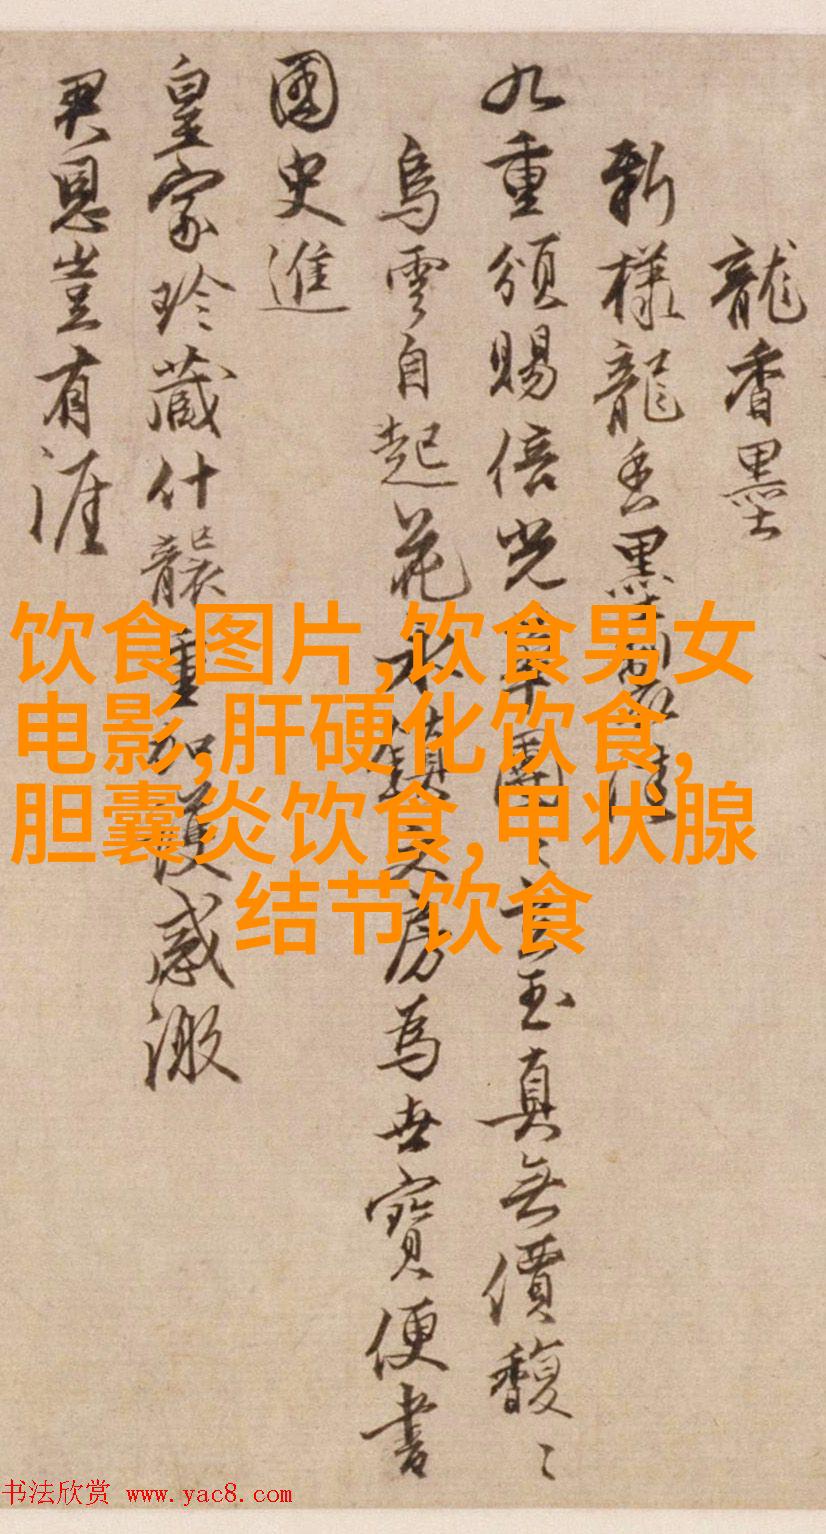 龍香墨
新樣龍香墨
九重頒賜倍光
玄玉真無價馥〻
烏雲自起花
文房為世寶便書
國史進
皇家珍藏什襲重
感激
君恩豈有涯
饮食图片,饮食男女
电影,肝硬化饮食,
胆囊炎饮食,甲状腺
结节饮食
书法欣赏 www.yac8.com